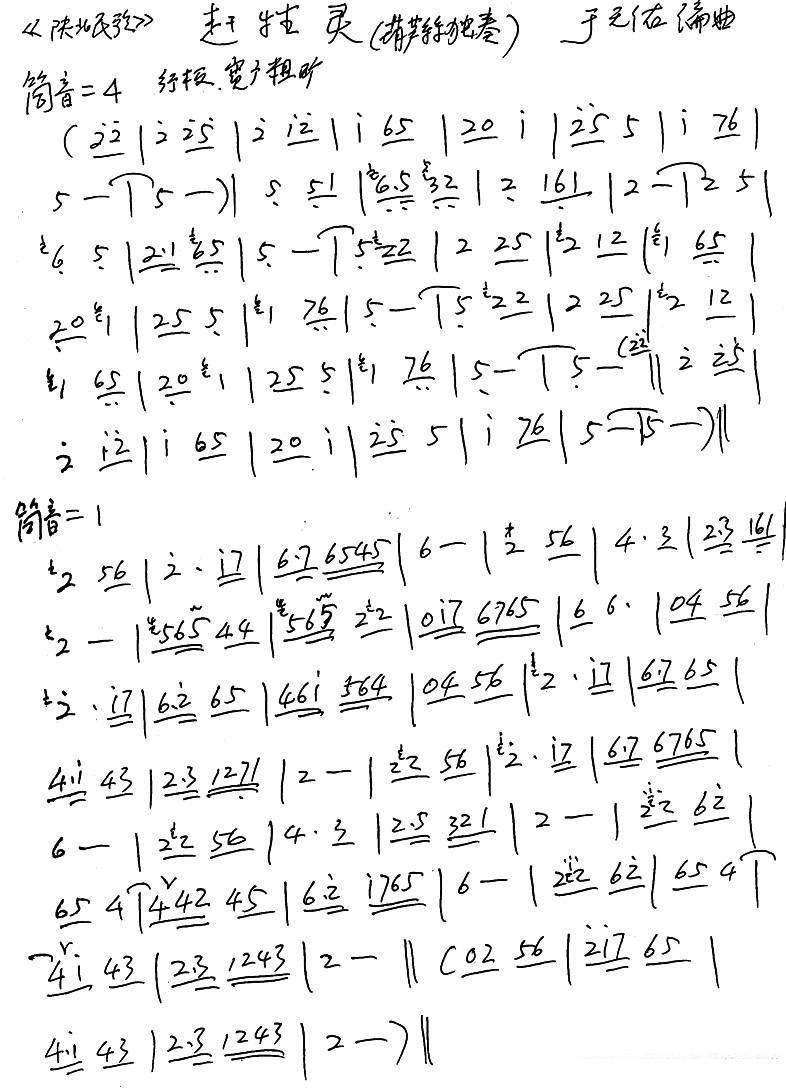 《陕北民歌》 赶牲灵(葫芦丝独奏) 于元佑编曲
筒音=4 行板.宽广粗旷
(2̇2̇ | 2̇ 2̇5̇ | 2̇ 1̇2̇ | 1̇ 65 | 20 1̇ | 2̇5̇ 5 | 1̇ 76 |
5 — | 5 —)‖ 5̣ 5̣1 | 6̣.5̣ 32 | 2 161 | 2 — | 2 5 |
6̣ 5̣ | 2.1 6̣5̣ | 5̣ — | 5̣ 22 | 2 25 | 2 12 | 1 6̣5̣ |
20 1 | 25 5̣ | 1 7̣6̣ | 5̣ — | 5̣ 22 | 2 25 | 2 12 |
1 6̣5̣ | 20 1 | 25 5̣ | 1 7̣6̣ | 5̣ — | 5̣ — (2̇2̇ ‖ 2̇ 2̇5̇ |
2̇ 1̇2̇ | 1̇ 65 | 20 1̇ | 2̇5̇ 5 | 1̇ 76 | 5 — | 5 —)‖
筒音=1
2 56 | 2̇ · 1̇7 | 6.7 6545 | 6 — | 2 56 | 4 · 3 | 2.3 161 |
2 — | 565 44 | 565 22 | 01̇7 6765 | 6 6· | 04 56 |
2̇ · 1̇7 | 6.2̇ 65 | 461̇ 564 | 04 56 | 2 · 1̇7 | 6.7 65 |
4.1̇ 43 | 2.3 1271 | 2 — | 22 56 | 2̇ · 1̇7 | 6.7 6765 |
6 — | 22 56 | 4 · 3 | 2.5 321 | 2 — | 2̇2 62̇ |
65 4 | 442 45 | 6.2̇ 1̇765 | 6 — | 22 62̇ | 65 4 |
41̇ 43 | 2.3 1243 | 2 — ‖ (02 56 | 2̇1̇7 65 |
4.1̇ 43 | 2.3 1243 | 2 —)‖